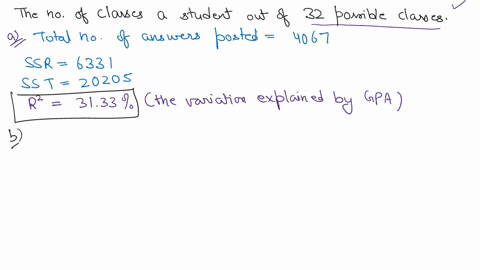 The no. of classes a student out of 32 possible classes.
a) Total no. of answers posted = 4067
SSR = 6331
SST = 20205
R² = 31.33 % (the variation explained by GPA)
b)